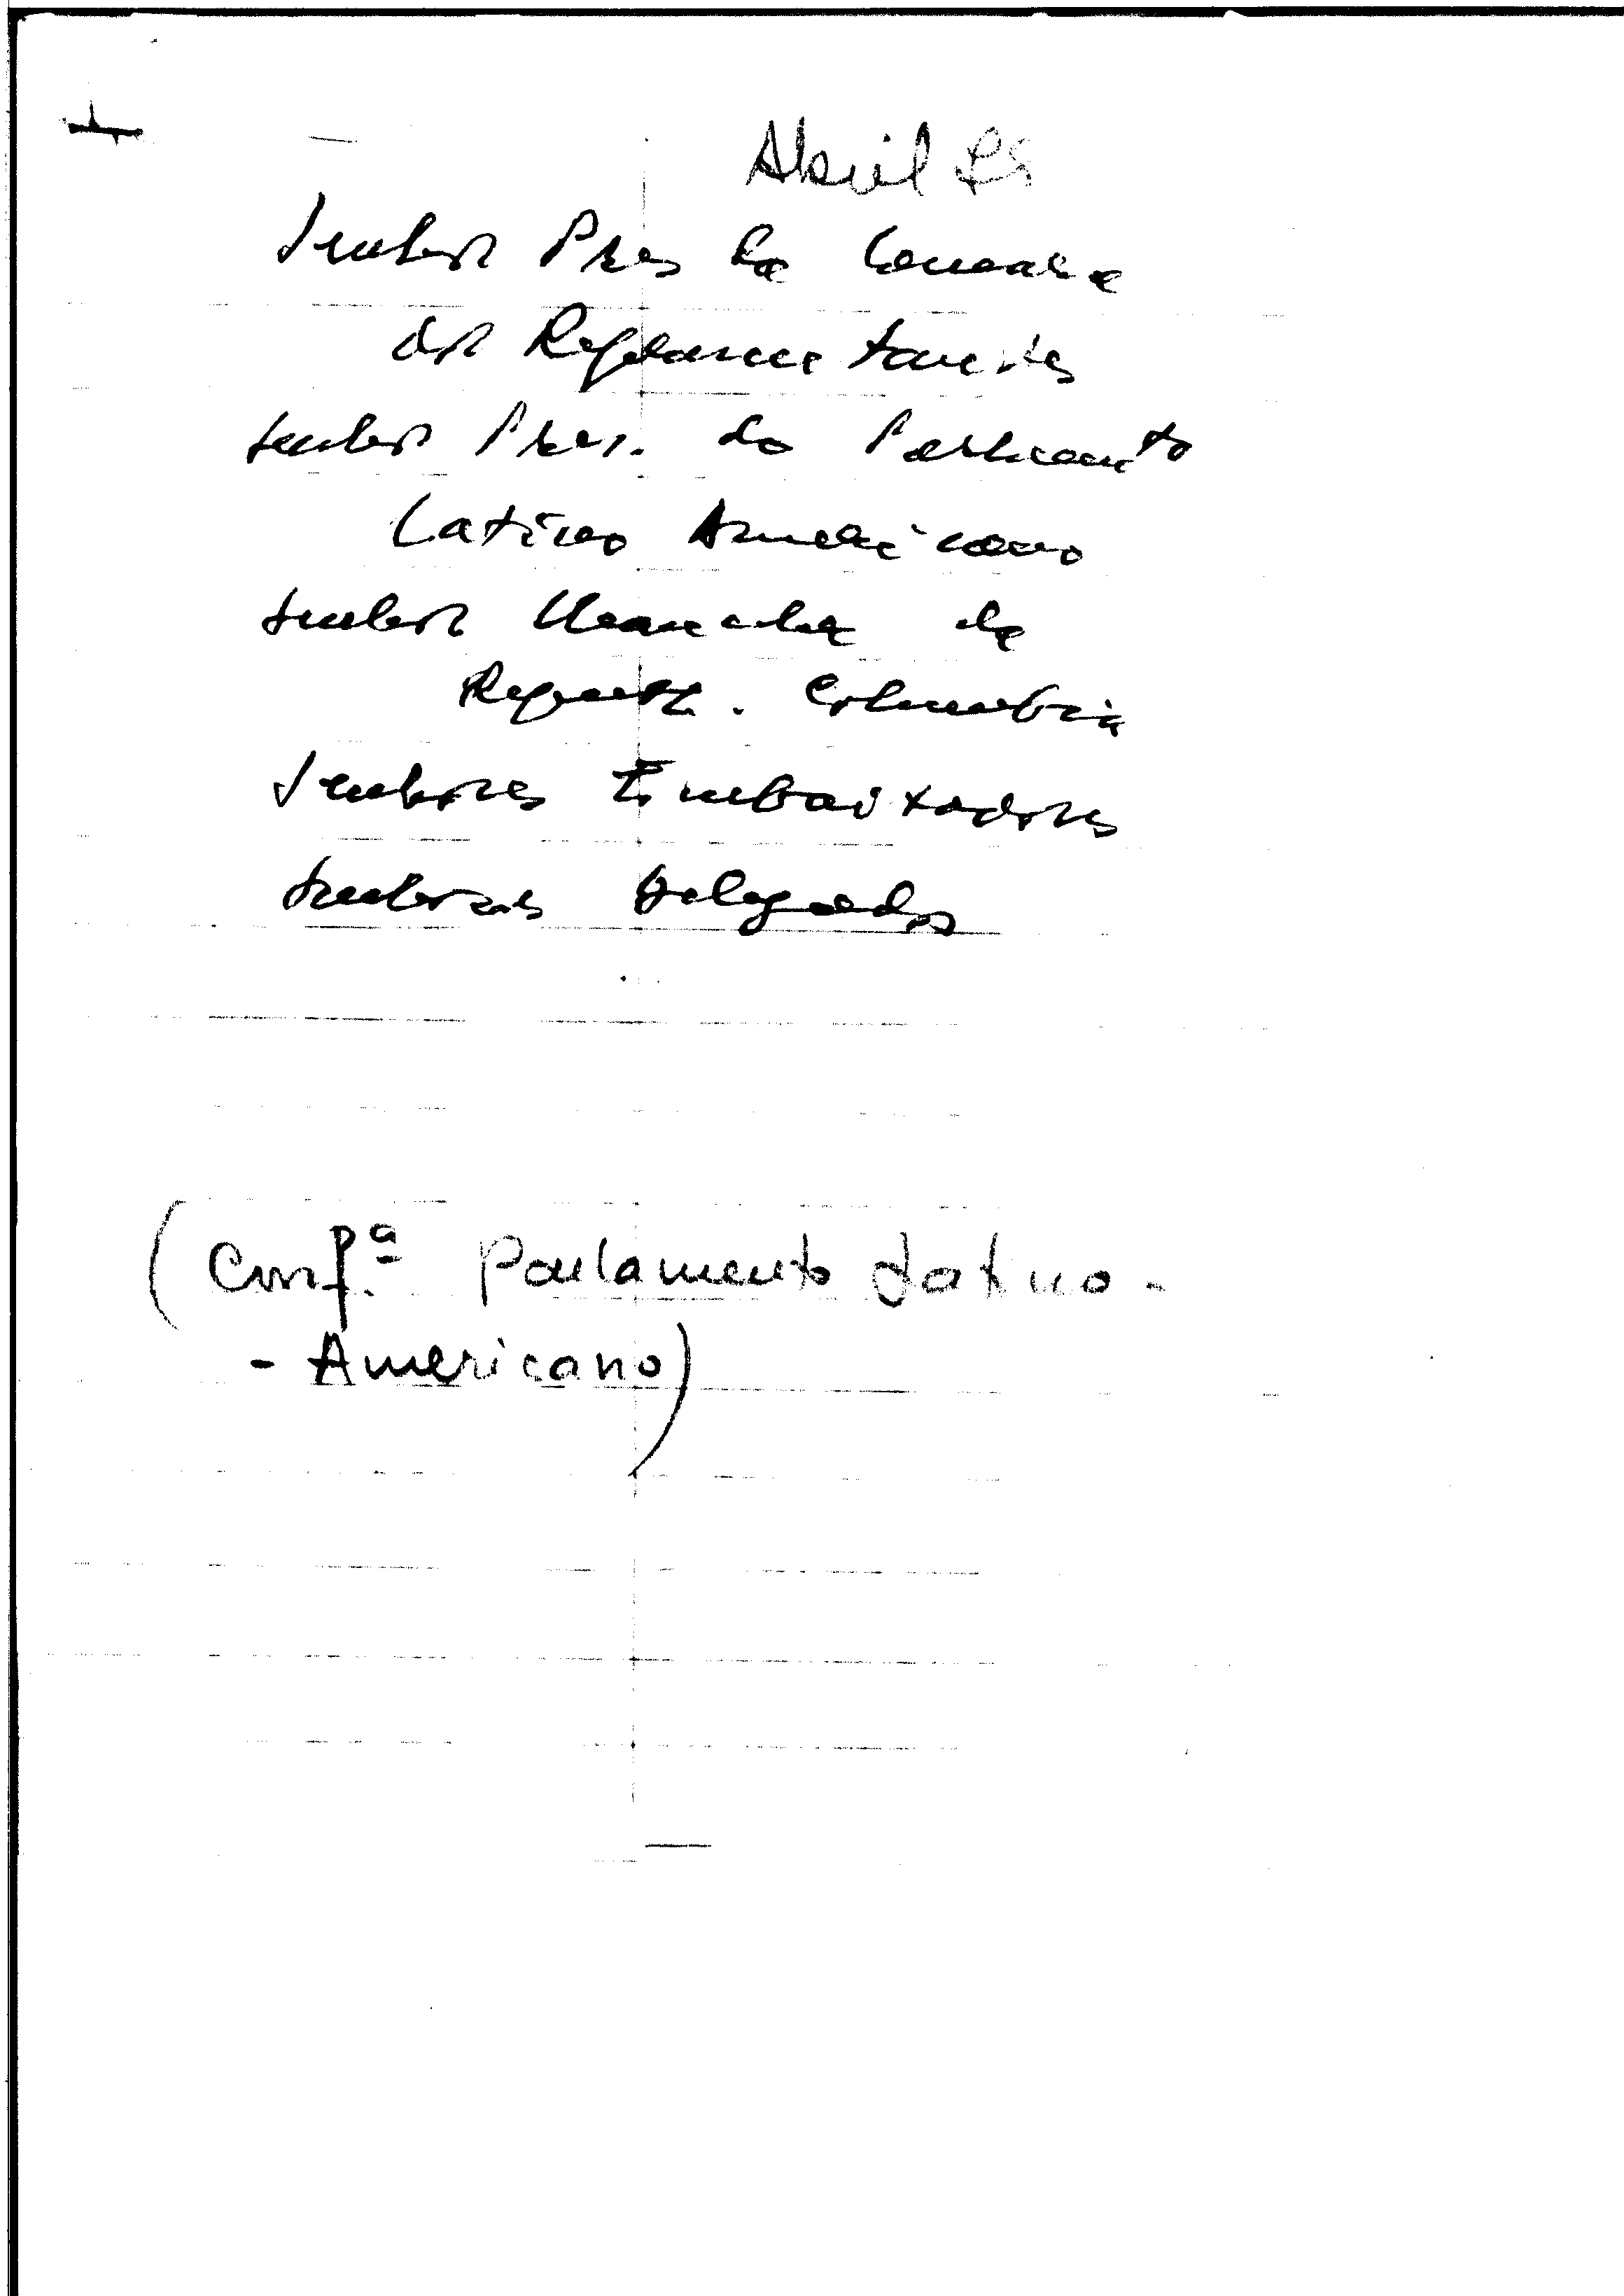 Abril 85
Senhor Pres da Camara
dos Representantes
Senhor Pres. do Parlamento
Latino Americano
Senhor Chanceler da
Colombia
Senhores Embaixadores
Senhores Delegados
(Conf.ª Parlamento Latino-
- Americano)